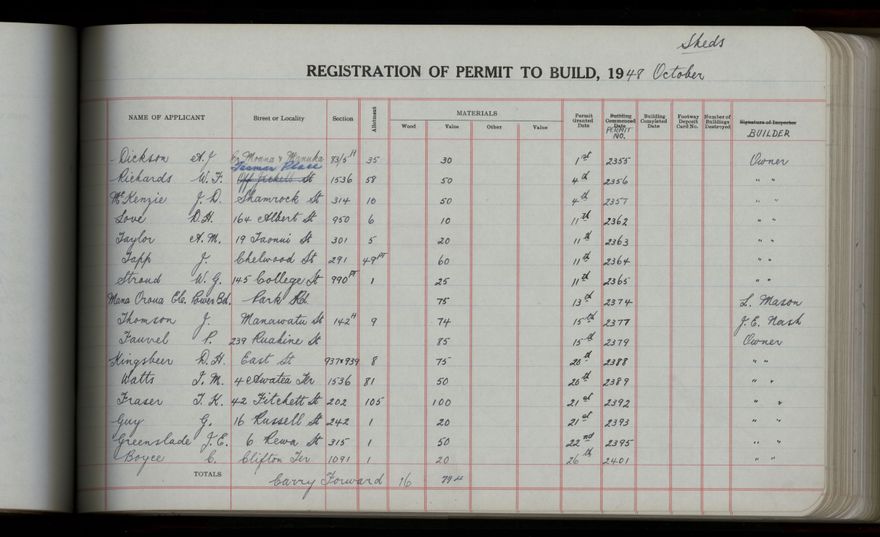 Sheds
REGISTRATION OF PERMIT TO BUILD, 1948 October
NAME OF APPLICANT Street or Locality Section Allotment MATERIALS Wood Value Other Value Permit Granted Date Building Commenced Date PERMIT NO. Building Completed Date Footway Deposit Card No. Number of Buildings Destroyed Signature of Inspector BUILDER
Dickson A.J. Cr Monna & Manuka 83/5 H 35 30 1st 2355 Owner
Richards W.F. Tasman Place St 1536 58 50 4th 2356 " "
McKenzie J.D. Shamrock St 314 10 50 4th 2357 " "
Love D.H. 164 Albert St 950 6 10 11th 2362 " "
Taylor A.M. 19 Taonui St 301 5 20 11th 2363 " "
Tapp J. Chelwood St 291 49 PT 60 11th 2364 " "
Stroud W.G. 145 College St 990 PT 1 25 11th 2365 " "
Mana Oroua Elc. Power Bd. Park Rd 75 13th 2374 L. Mason
Thomson J. Manawatu St 142 H 9 74 15th 2377 J.E. Nash
Fauvel P. 239 Ruahine St 85 15th 2379 Owner
Kingsbeer D.H. East St 937+939 8 75 20th 2388 " "
Watts J.M. 4 Awatea Ter 1536 81 50 20th 2389 " "
Fraser T.K. 42 Fitchett St 202 105 100 21st 2392 " "
Guy G. 16 Russell St 242 1 20 21st 2393 " "
Greenslade J.E. 6 Rewa St 315 1 50 22nd 2395 " "
Boyce C. Clifton Ter 1091 1 20 26th 2401 " "
TOTALS Carry Forward 16